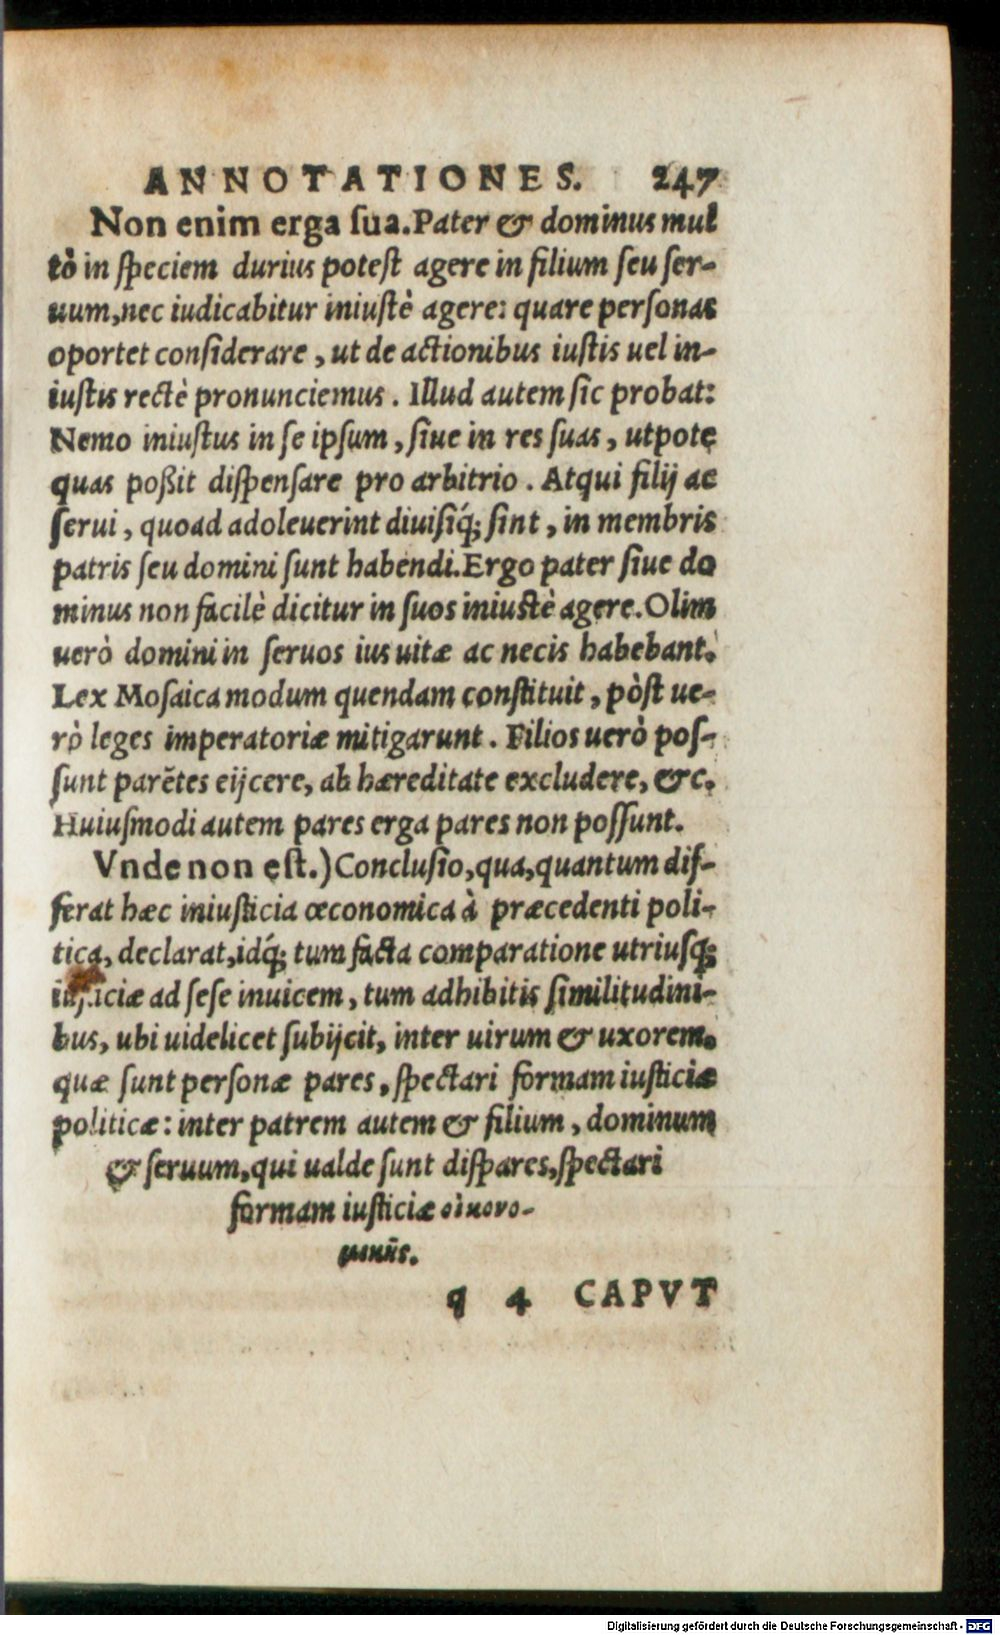 ANNOTATIONES. 247
Non enim erga sua. Pater & dominus mul
tò in speciem durius potest agere in filium seu ser-
uum, nec iudicabitur iniustè agere: quare personas
oportet considerare, ut de actionibus iustis uel in-
iustis rectè pronunciemus. Illud autem sic probat:
Nemo iniustus in se ipsum, siue in res suas, utpote
quas poßit dispensare pro arbitrio. Atqui filij ac
serui, quoad adoleuerint diuisiq́; sint, in membris
patris seu domini sunt habendi. Ergo pater siue do
minus non facilè dicitur in suos iniustè agere. Olim
uerò domini in seruos ius uitæ ac necis habebant.
Lex Mosaica modum quendam constituit, pòst ue-
rò leges imperatoriæ mitigarunt. Filios uerò pos-
sunt parẽtes eijcere, ab hæreditate excludere, &c.
Huiusmodi autem pares erga pares non possunt.
Vnde non est.) Conclusio, qua, quantum dif-
ferat hæc iniusticia œconomica à præcedenti poli-
tica, declarat, idq́; tum facta comparatione utriusq;
iusticiæ ad sese inuicem, tum adhibitis similitudini-
bus, ubi uidelicet subijcit, inter uirum & uxorem,
quæ sunt personæ pares, spectari formam iusticiæ
politicæ: inter patrem autem & filium, dominum
& seruum, qui ualde sunt dispares, spectari
formam iusticiæ οἰκονο-
μικῆς.
q 4 CAPVT
Digitalisierung gefördert durch die Deutsche Forschungsgemeinschaft - DFG